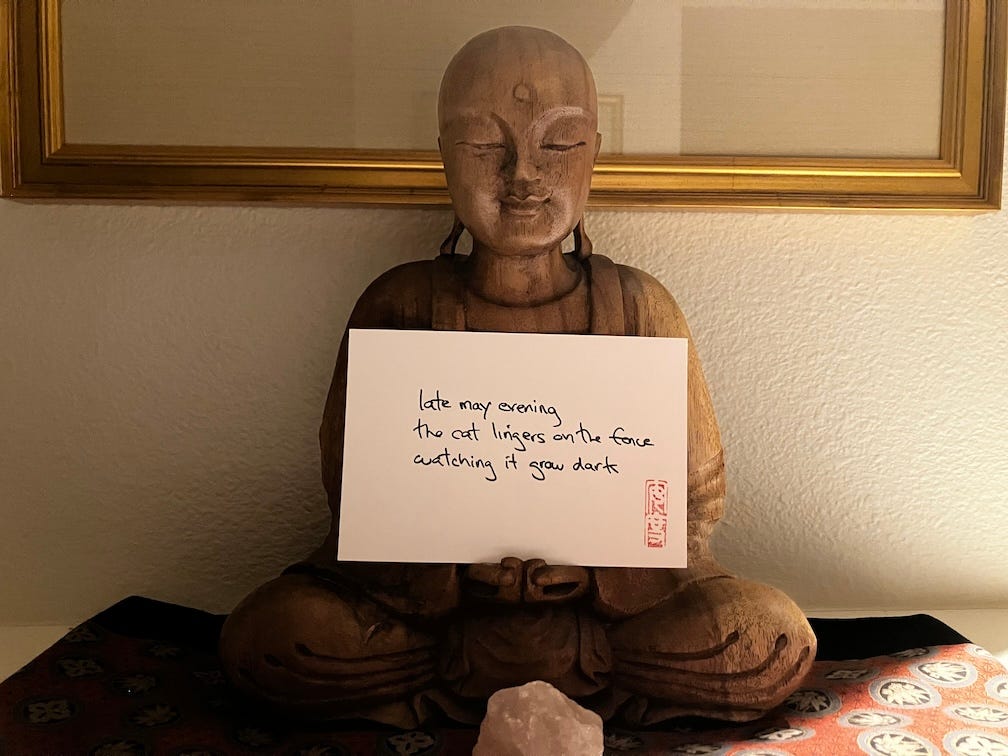 late may evening
the cat lingers on the fence
watching it grow dark